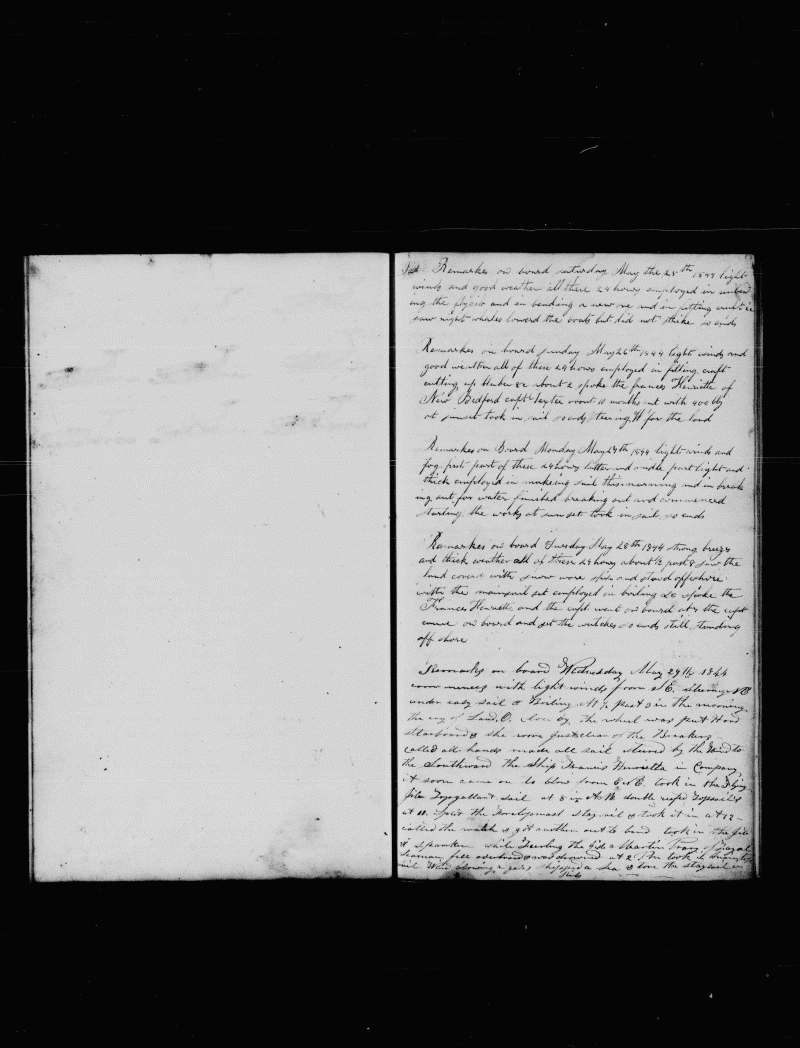 Remarks on board saturday May the 25th 1844 light
winds and good weather all these 24 hours employed in unbend
ing the flying and in bending a new one and in cutting
saw right whales lowerd the boats but did not strike so ends
Remarks on board sunday May 26th 1844 light winds and
good weather all of these 24 hours employed in fitting craft
cutting up bluber &c about 2 spoke the frances Henriette of
New Bedford capt about 10 months out with 400 bbls
at sunset took in sail so ends steering W for the land
Remarks on Board Monday May 27th 1844 light winds and
fog first part of these 24 hours latter and midle part light and
thick employed in makeing sail this morning and in break
ing out for water finished breaking out and commenced
starting the works at sun set took in sail so ends
Remarks on board Tuesday May 28th 1844 strong breeze
and thick weather all of these 24 hours about ½ past 8 saw the
land coverd with snow wore ship and stood off shore
with the mainsail set employed in boiling &c spoke the
Frances Henriett and the capt went on board at 7 the capt
came on board and set the watches so ends still standing
off shore
Remarks on board Wednesday May 29th 1844
commences with light winds from SE. Steering NE
under easy sail & Boiling. At ½ past 3 in the morning
the cry of Land O. close by, the wheel was put Hard
Starboard & she wore just clear of the Breakers
called all hands made all sail steered by the Wind to
the Southward the Ship Francis Henrietta in Company
it soon came on to blow from E NE. took in the Flying
Jib & Topgallant sail at 8 in A.M. double reefed Topsails
at 11. Split the Foretopmast Stay sail & took it in at 12
called the watch & got another out to bend took in the Jib
& spanker while Furling the Jib a Martin Tracy of Fayal
Seaman fell overboard & was drowned at 2 PM took in
sail Wind blowing a gale shipped a Sea & tore the staysail in